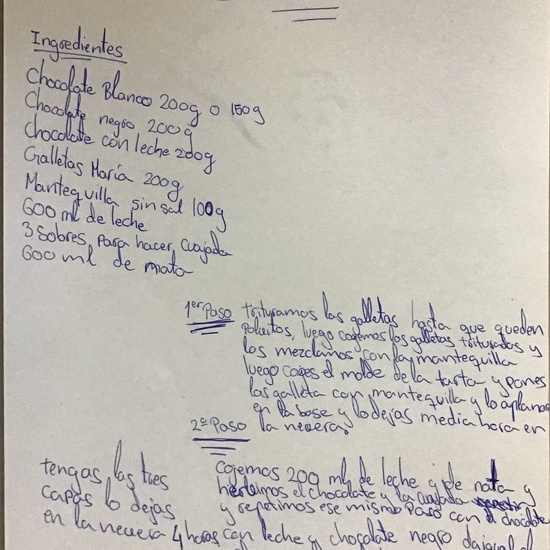 Ingredientes
Chocolate Blanco 200g o 150g
Chocolate negro 200g
Chocolate con leche 200g
Galletas María 200g
Mantequilla sin sal 100g
600 ml de leche
3 Sobres para hacer cuajada
600 ml de nata
1er Paso
trituramos las galletas hasta que queden
polvitos, luego cogemos las galletas trituradas y
las mezclamos con la mantequilla
luego coges el molde de la tarta y pones
las galleta con mantequilla y lo aplanas
en la base y lo dejas media hora en
la nevera.
2º Paso
Cogemos 200 ml de leche y de nata y
hervimos el chocolate y la cuajada
y repetimos ese mismo paso con el chocolate
con leche y chocolate negro
tengas las tres
capas lo dejas
en la nevera 4 horas